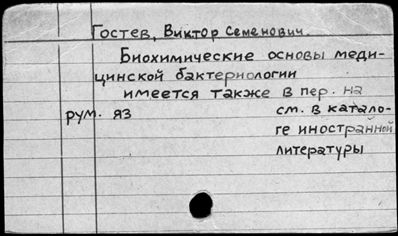 Гостев, Виктор Семенович.
Биохимические основы меди-
цинской бактериологии
имеется также в пер. на
рум. яз см. в катало-
ге иностранной
литературы